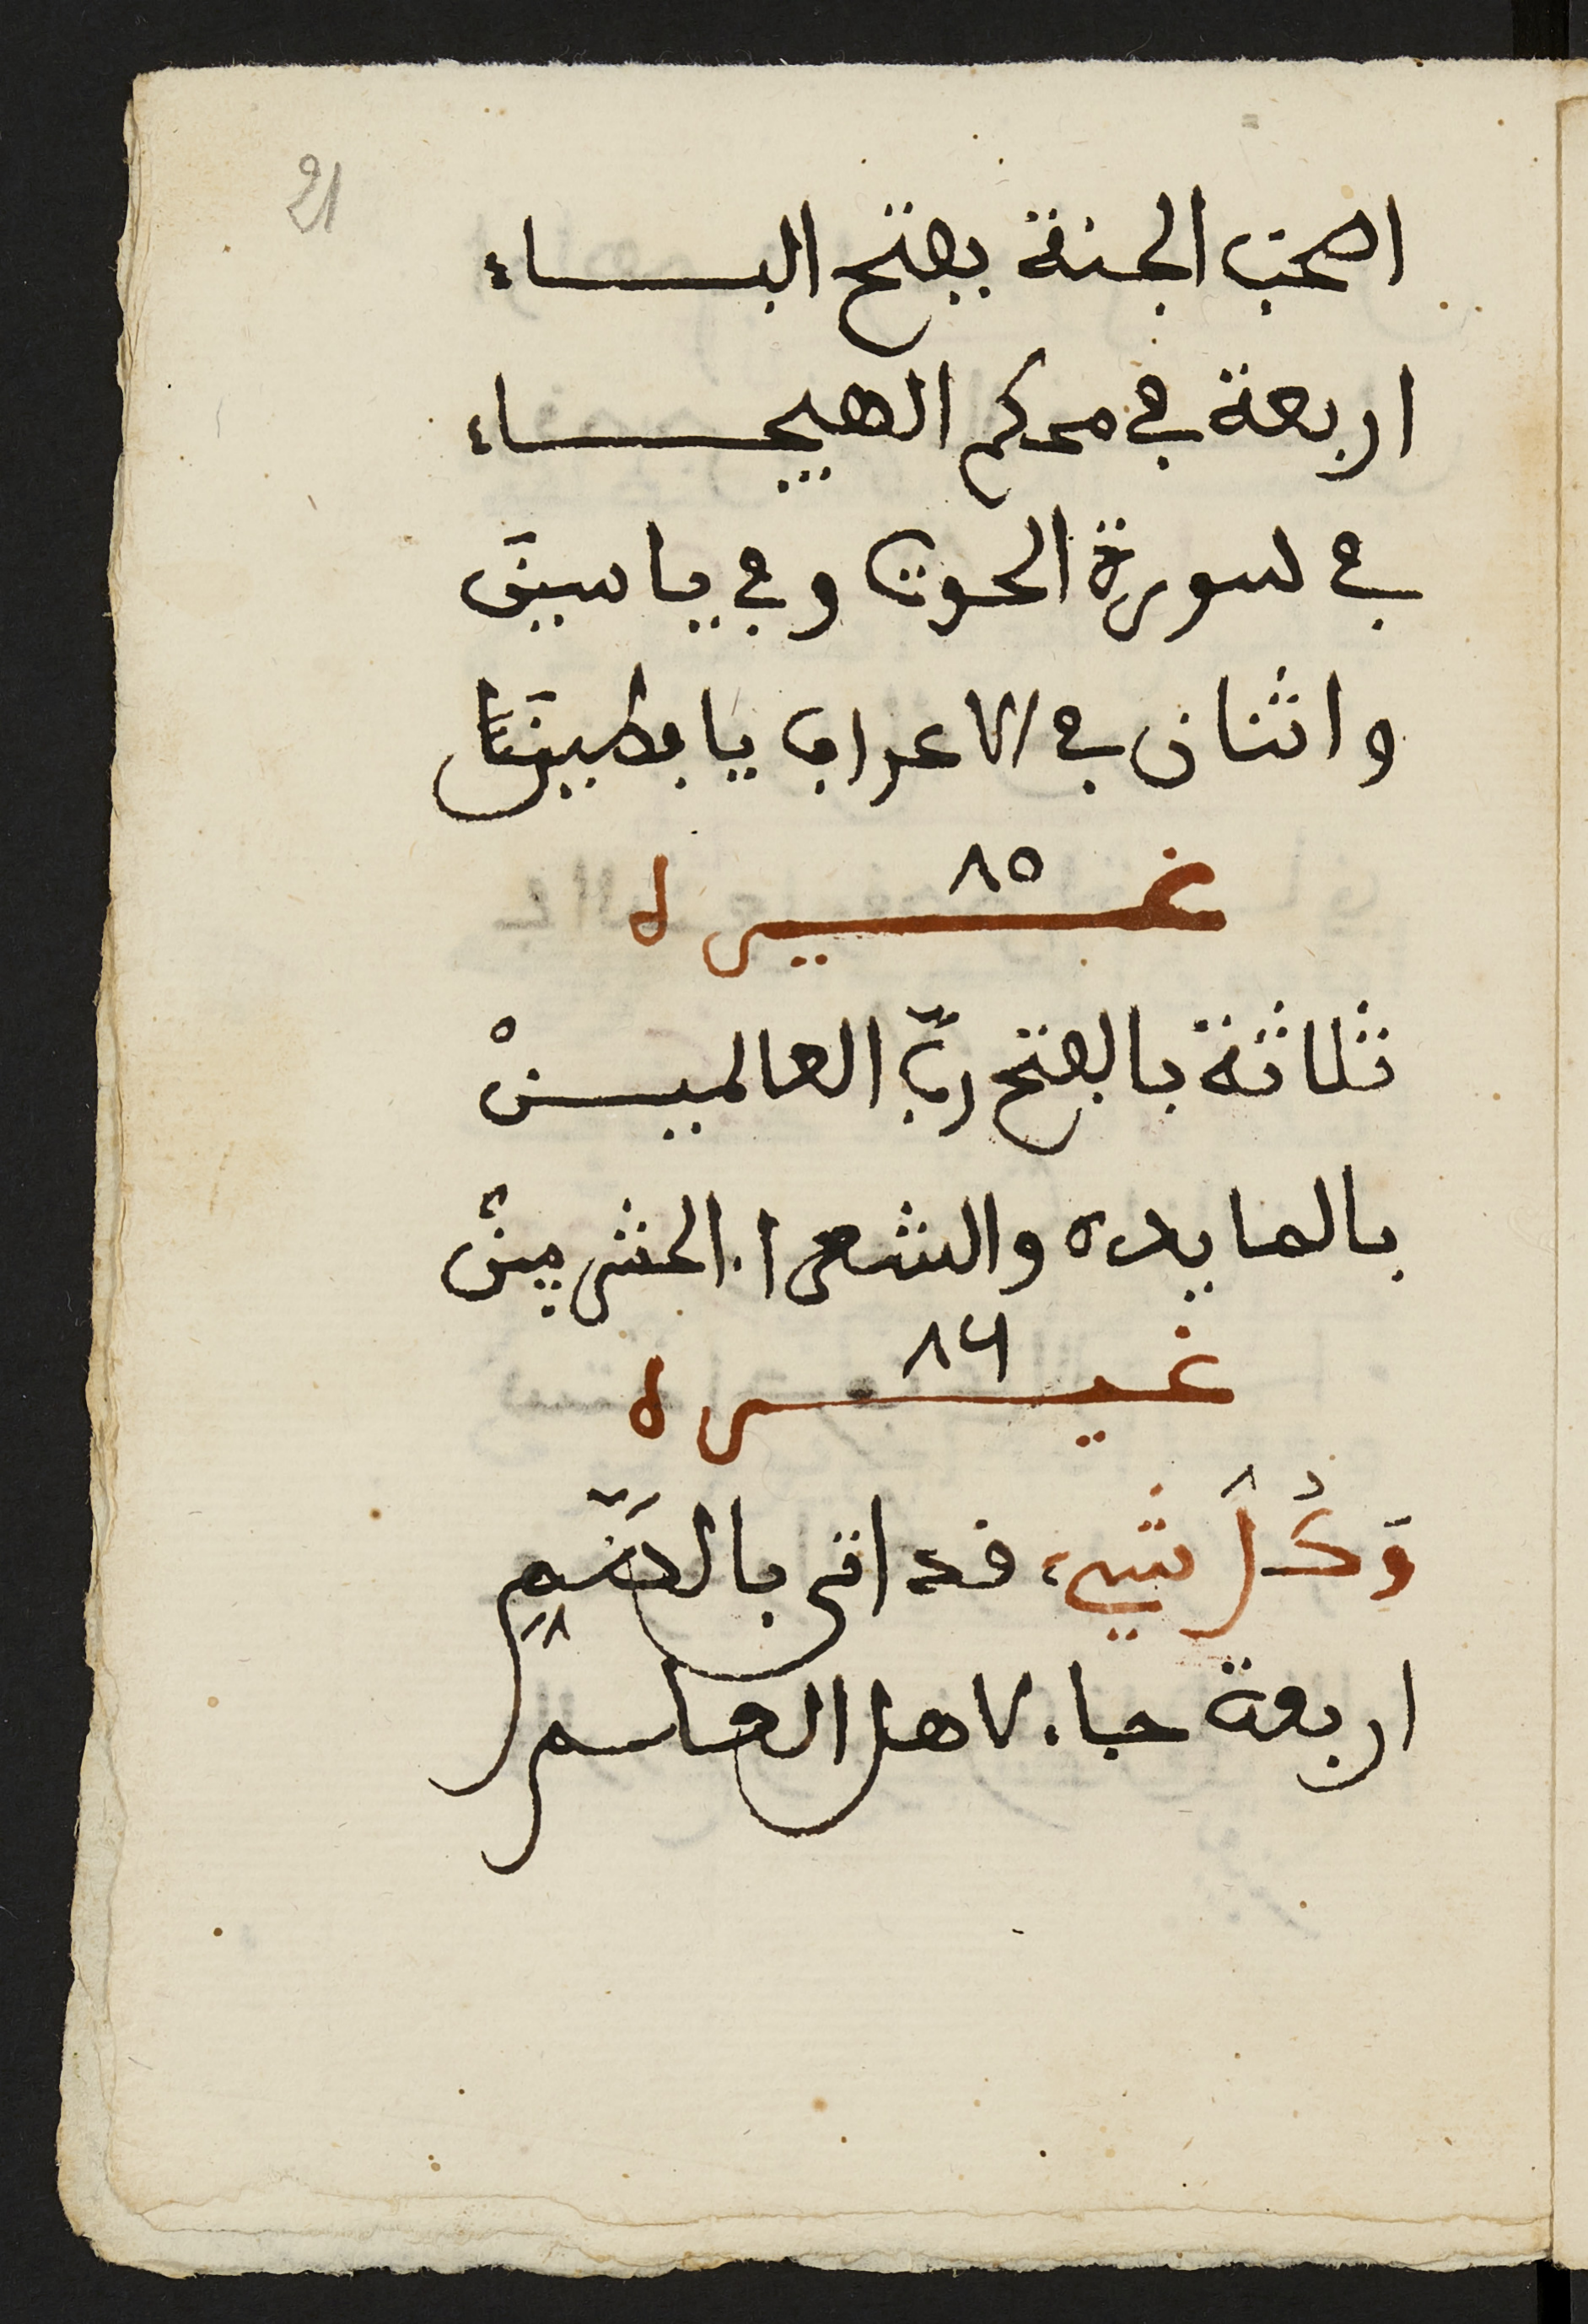 21
اصحب الجنة بفتح البـــاء
اربعة في محكم الهيجـــاء
في سورة الحوت وفي ياسينَ
واثنان في الاعراف يا فطينَا
غـــيره ٨٥
ثلاثة بالفتح ربَّ العالميـــنْ
بالمايده والشعرا. الحشر مبينْ
غيـــره ٨٦
وَكُلَّ شيء قد اتى بالضَّمِ
اربعة جا. لاهل العلـــم